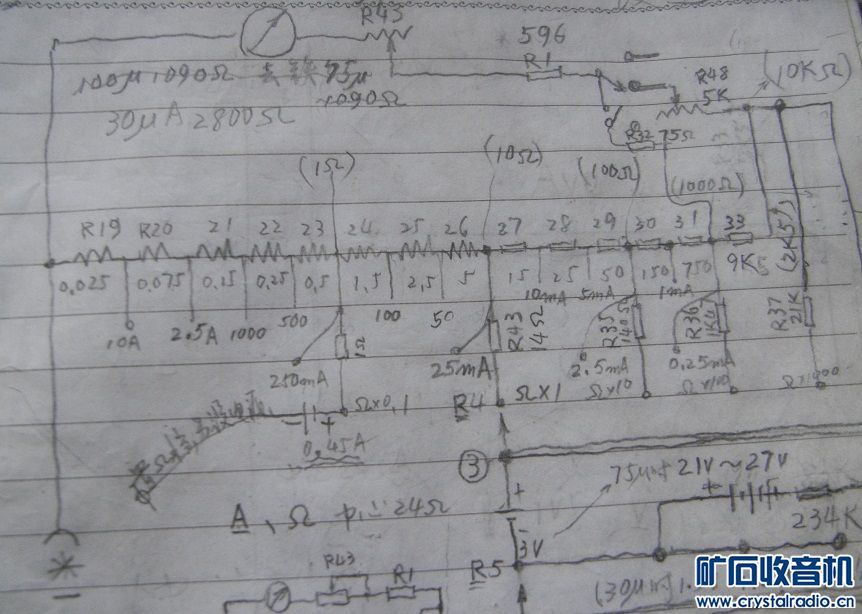 R43
596
R1
100μ 1090Ω 75μ
1090Ω
30μA 2800Ω
R48
5K
(10KΩ)
R32 75Ω
(1Ω)
(10Ω)
(100Ω)
(1000Ω)
R19 R20 21 22 23 24 25 26 27 28 29 30 31 33
0.025 0.075 0.25 0.5 1.5 2.5 5 15 25 50 150 750 9K5
(2K5)
10A 2.5A 1000 500 100 50 10mA 5mA 1mA
1Ω
R43
14Ω
R35
140Ω
R36
1K4
R37
21K
250mA 25mA 2.5mA 0.25mA
Ω×0.1 R4 Ω×1 Ω×10 Ω×100
0.45A
③
75μ 21V~27V
A、Ω 24Ω
234K
3V
R5
R43 R1
(30μ
矿石收音机
www.crystalradio.cn